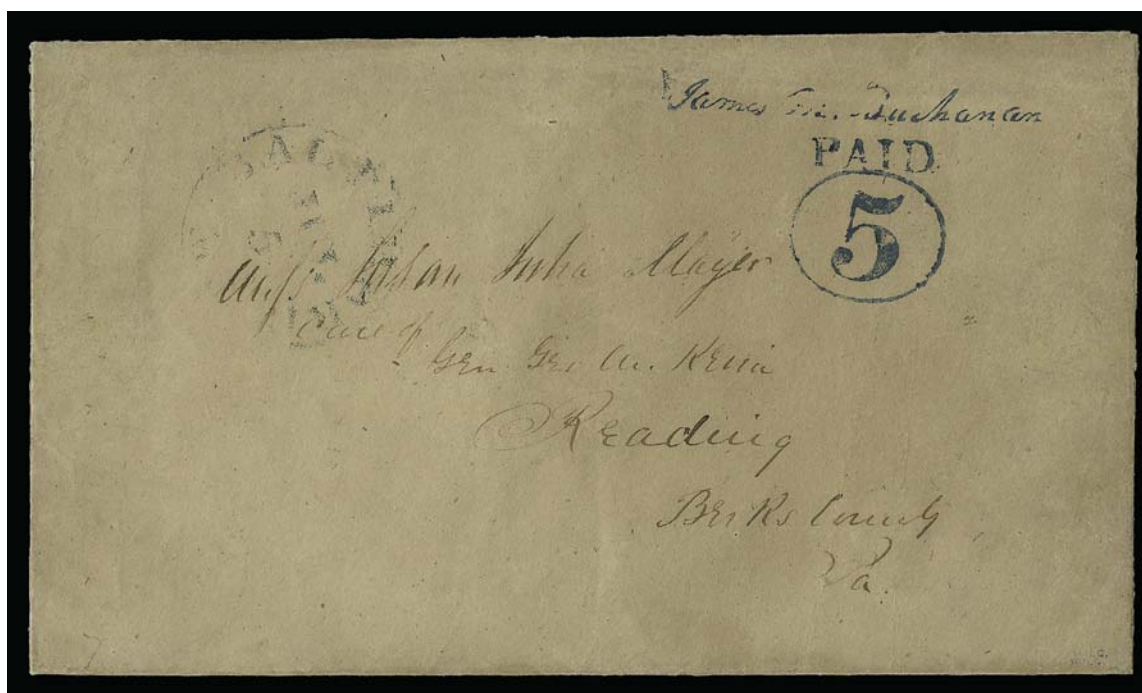 James M. Buchanan
PAID
5
BALTI
5
Miss Susan Mayer
Care of
Gen Geo M. Keim
Reading
Berks County
Pa.